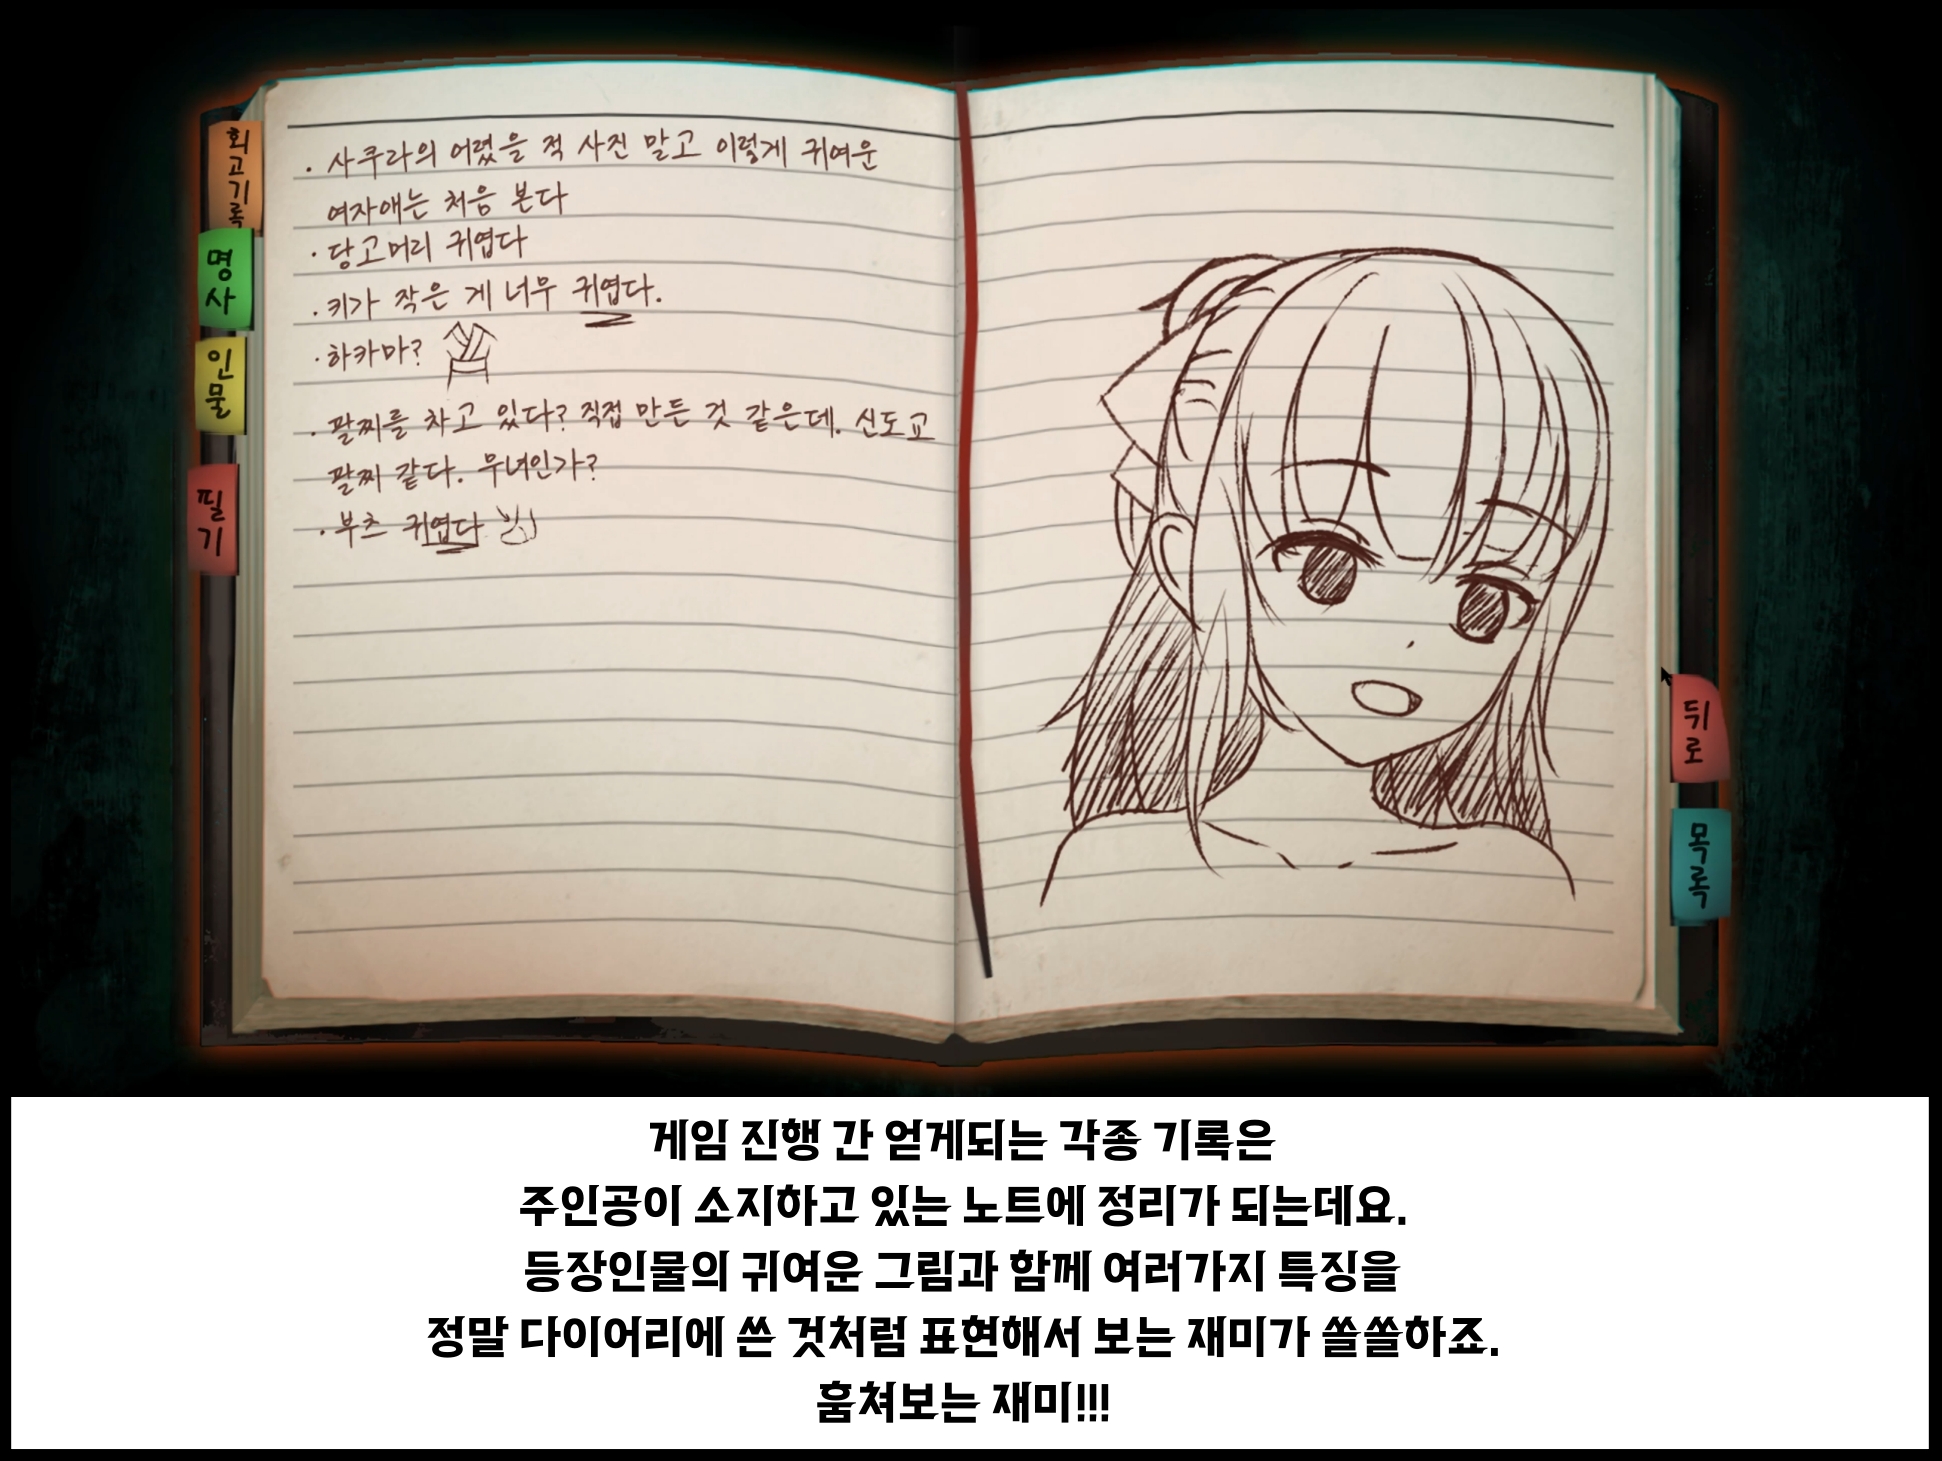 회고기록
명사
인물
필기
· 사쿠라의 어렸을 적 사진 말고 이렇게 귀여운
여자애는 처음 본다
· 당고머리 귀엽다
· 키가 작은 게 너무 귀엽다.
· 하카마?
· 팔찌를 차고 있다? 직접 만든 것 같은데. 신도교
팔찌 같다. 무녀인가?
· 부츠 귀엽다
뒤로
목록
게임 진행 간 얻게되는 각종 기록은
주인공이 소지하고 있는 노트에 정리가 되는데요.
등장인물의 귀여운 그림과 함께 여러가지 특징을
정말 다이어리에 쓴 것처럼 표현해서 보는 재미가 쏠쏠하죠.
훔쳐보는 재미!!!